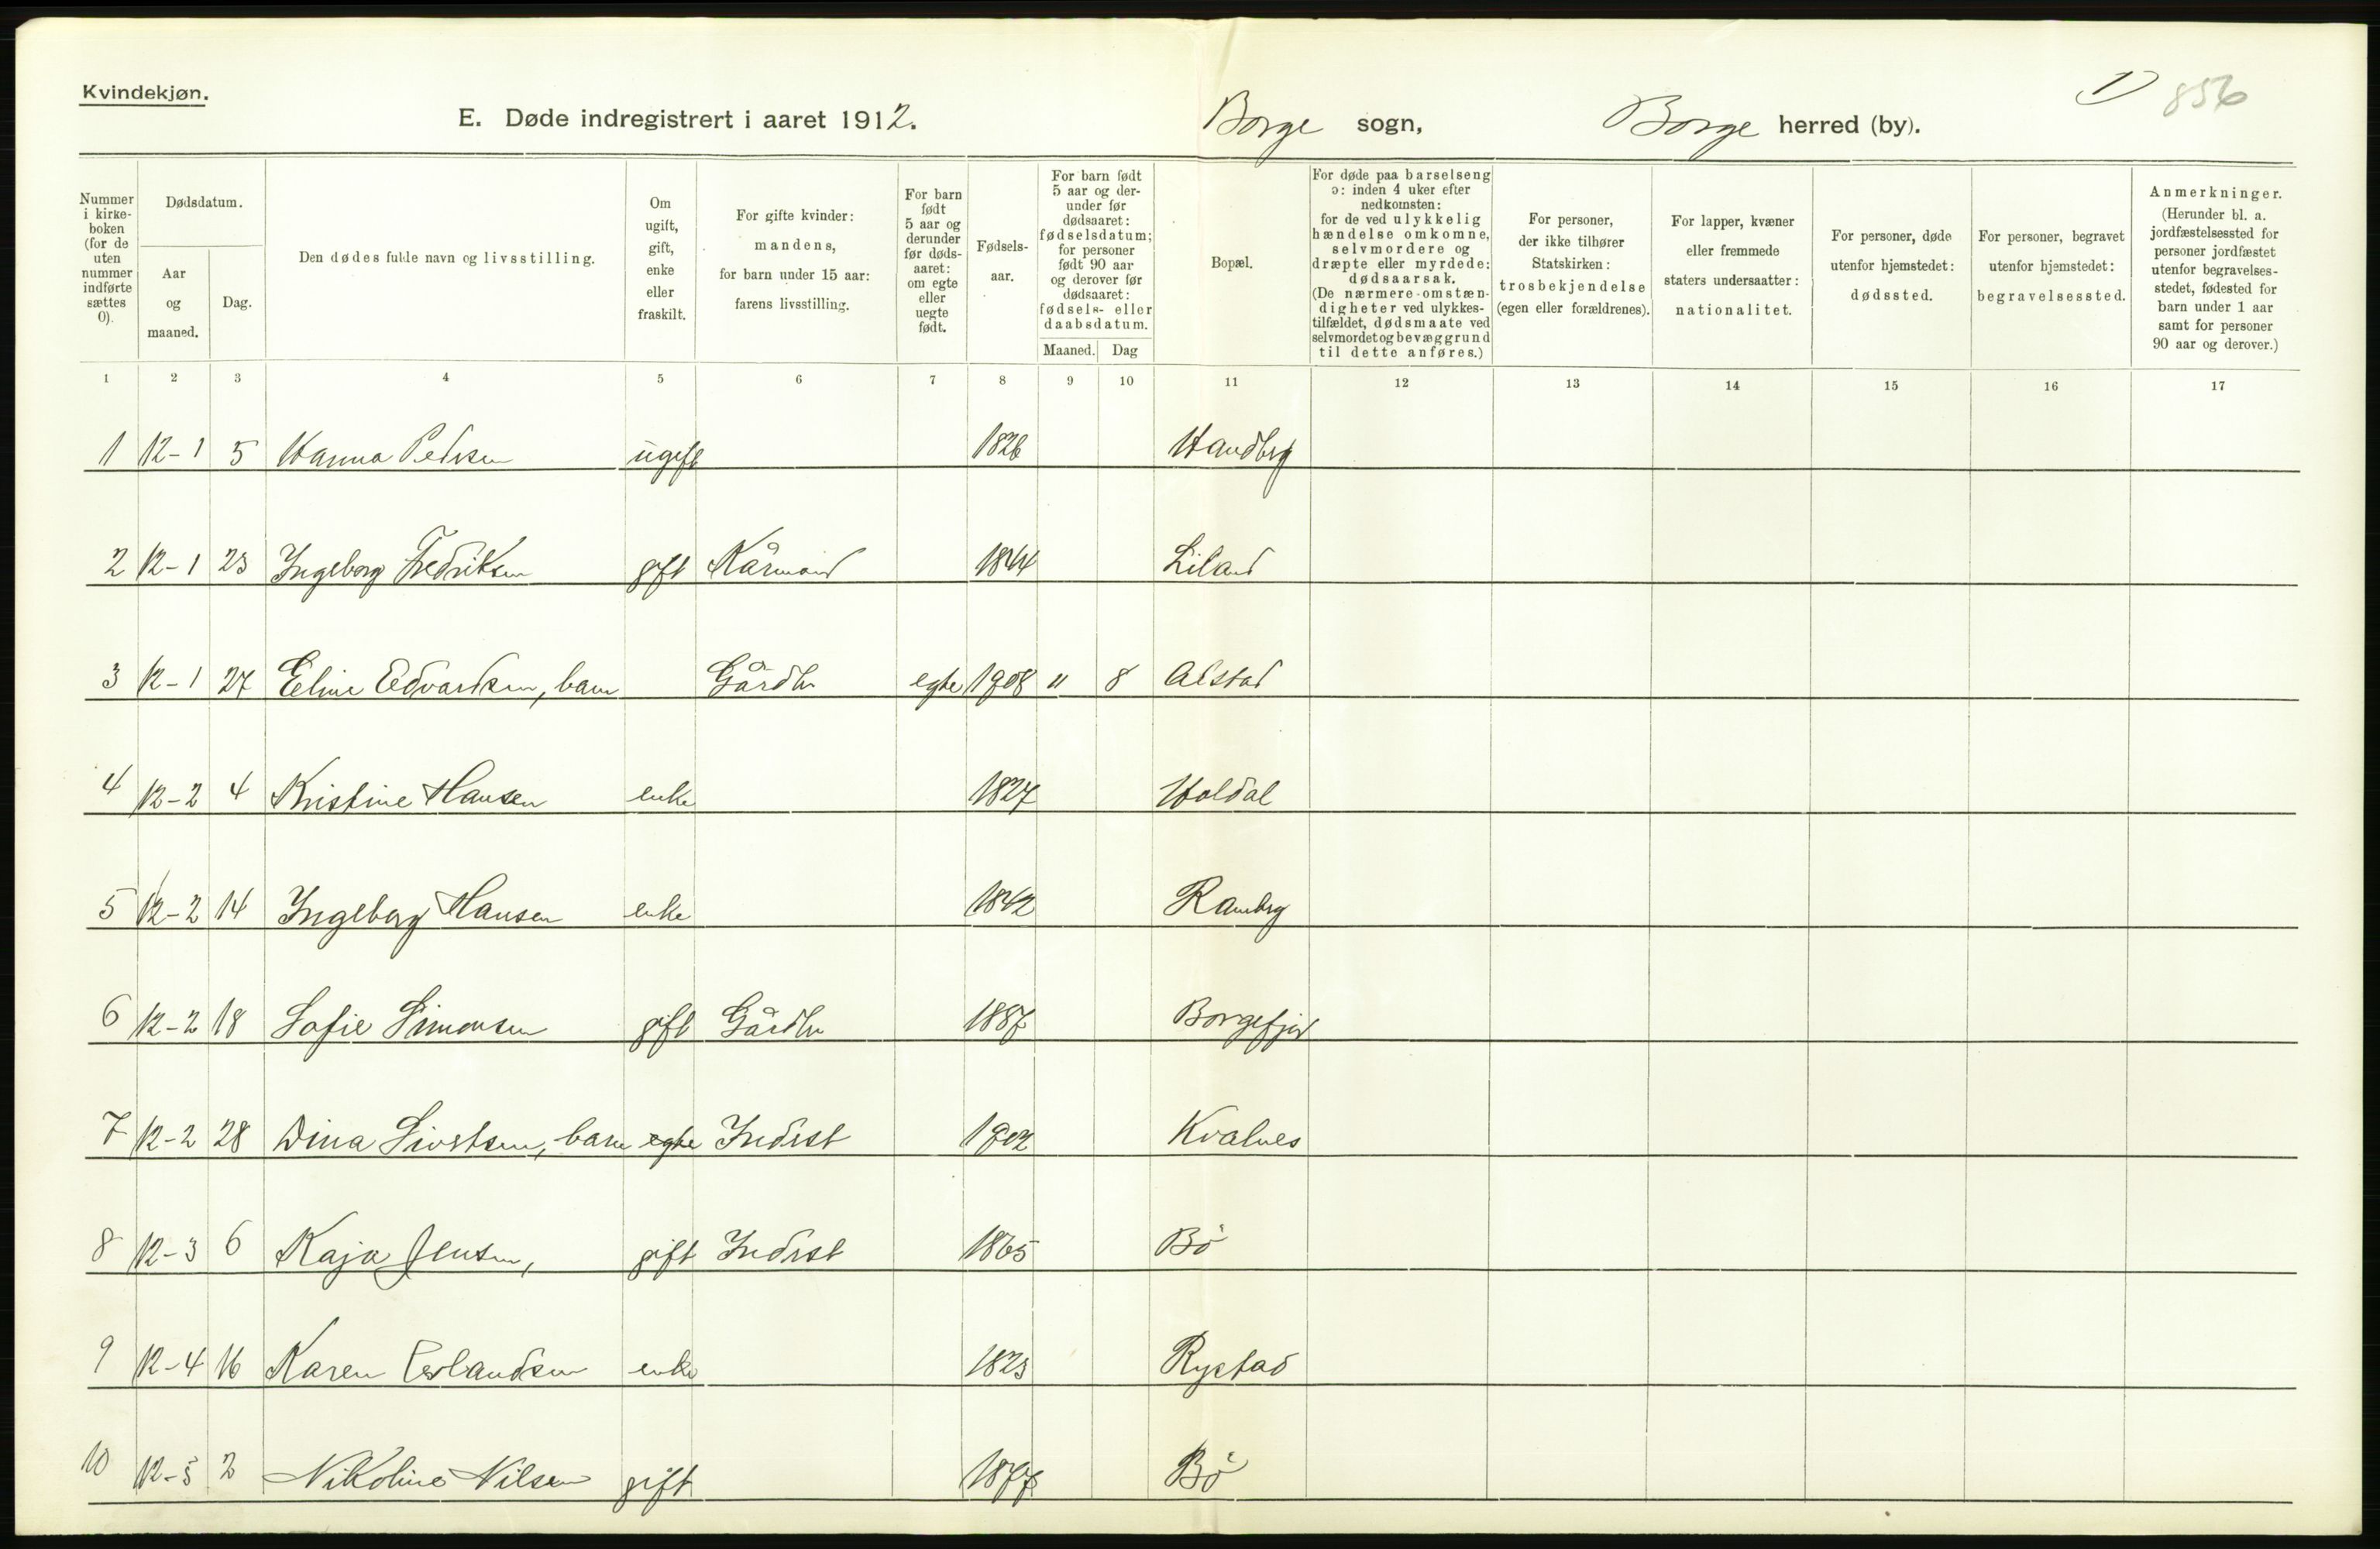 Kvindekjøn.
E. Døde indregistrert i aaret 1912. Borge sogn, Borge herred (by). 1) 856
Nummer i kirkeboken (for de uten nummer indførte sættes 0).
Dødsdatum.
Aar og maaned.
Dag.
Den dødes fulde navn og livsstilling.
Om ugift, gift, enke eller fraskilt.
For gifte kvinder: mandens, for barn under 15 aar: farens livsstilling.
For barn født 5 aar og derunder før dødsaaret: om egte eller uegte født.
Fødselsaar.
For barn født 5 aar og derunder før dødsaaret: fødselsdatum; for personer født 90 aar og derover før dødsaaret: fødsels- eller daabsdatum.
Maaned. Dag
Bopæl.
For døde paa barselseng ɔ: inden 4 uker efter nedkomsten: for de ved ulykkelig hændelse omkomne, selvmordere og dræpte eller myrdede: dødsaarsak. (De nærmere omstændigheter ved ulykkestilfældet, dødsmaate ved selvmordet og bevæggrund til dette anføres.)
For personer, der ikke tilhører Statskirken: trosbekjendelse (egen eller forældrenes).
For lapper, kvæner eller fremmede staters undersaatter: nationalitet.
For personer, døde utenfor hjemstedet: dødssted.
For personer, begravet utenfor hjemstedet: begravelsessted.
Anmerkninger. (Herunder bl. a. jordfæstelsessted for personer jordfæstet utenfor begravelsesstedet, fødested for barn under 1 aar samt for personer 90 aar og derover.)
1 2 3 4 5 6 7 8 9 10 11 12 13 14 15 16 17
1 12-1 5 Hanna Pedersen ugift 1826 Handberg
2 12-1 23 Ingeborg Fredriksen gift Kårmand 1844 Liland
3 12-1 27 Eline Edvardsen, barn Gårdbr egte 1908 11 8 Alstad
4 12-2 4 Kristine Hansen enke 1827 Holdal
5 12-2 14 Ingeborg Hansen enke 1842 Ramberg
6 12-2 18 Sofie Simonsen gift Gårdbr 1887 Borgefjord
7 12-2 28 Dina Sivertsen, barn egte Inderst 1902 Kvalnes
8 12-3 6 Kaja Jensen, gift Inderst 1865 Bø
9 12-4 16 Karen Erlandsen enke 1823 Rystad
10 12-5 2 Nikoline Nilsen gift 1877 Bø